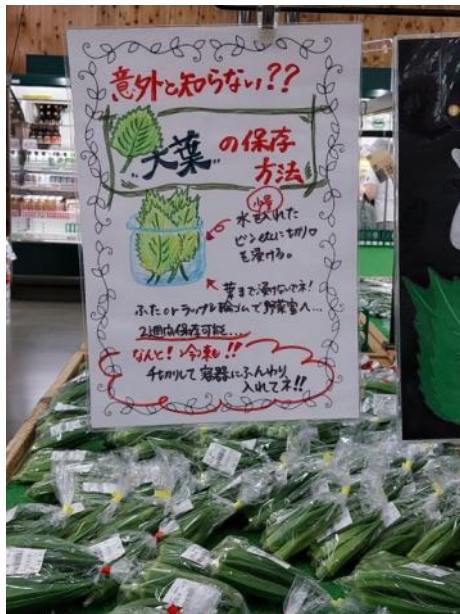 意外と知らない??
"大葉"の保存
方法
少量
水を入れた
ビンetcに切り口
を浸ける。
葉まで浸けないでネ!
ふたorラップと輪ゴムで野菜室へ…
2週間保存可能…
なんと!冷凍も!!
千切りして容器にふんわり
入れてネ!!